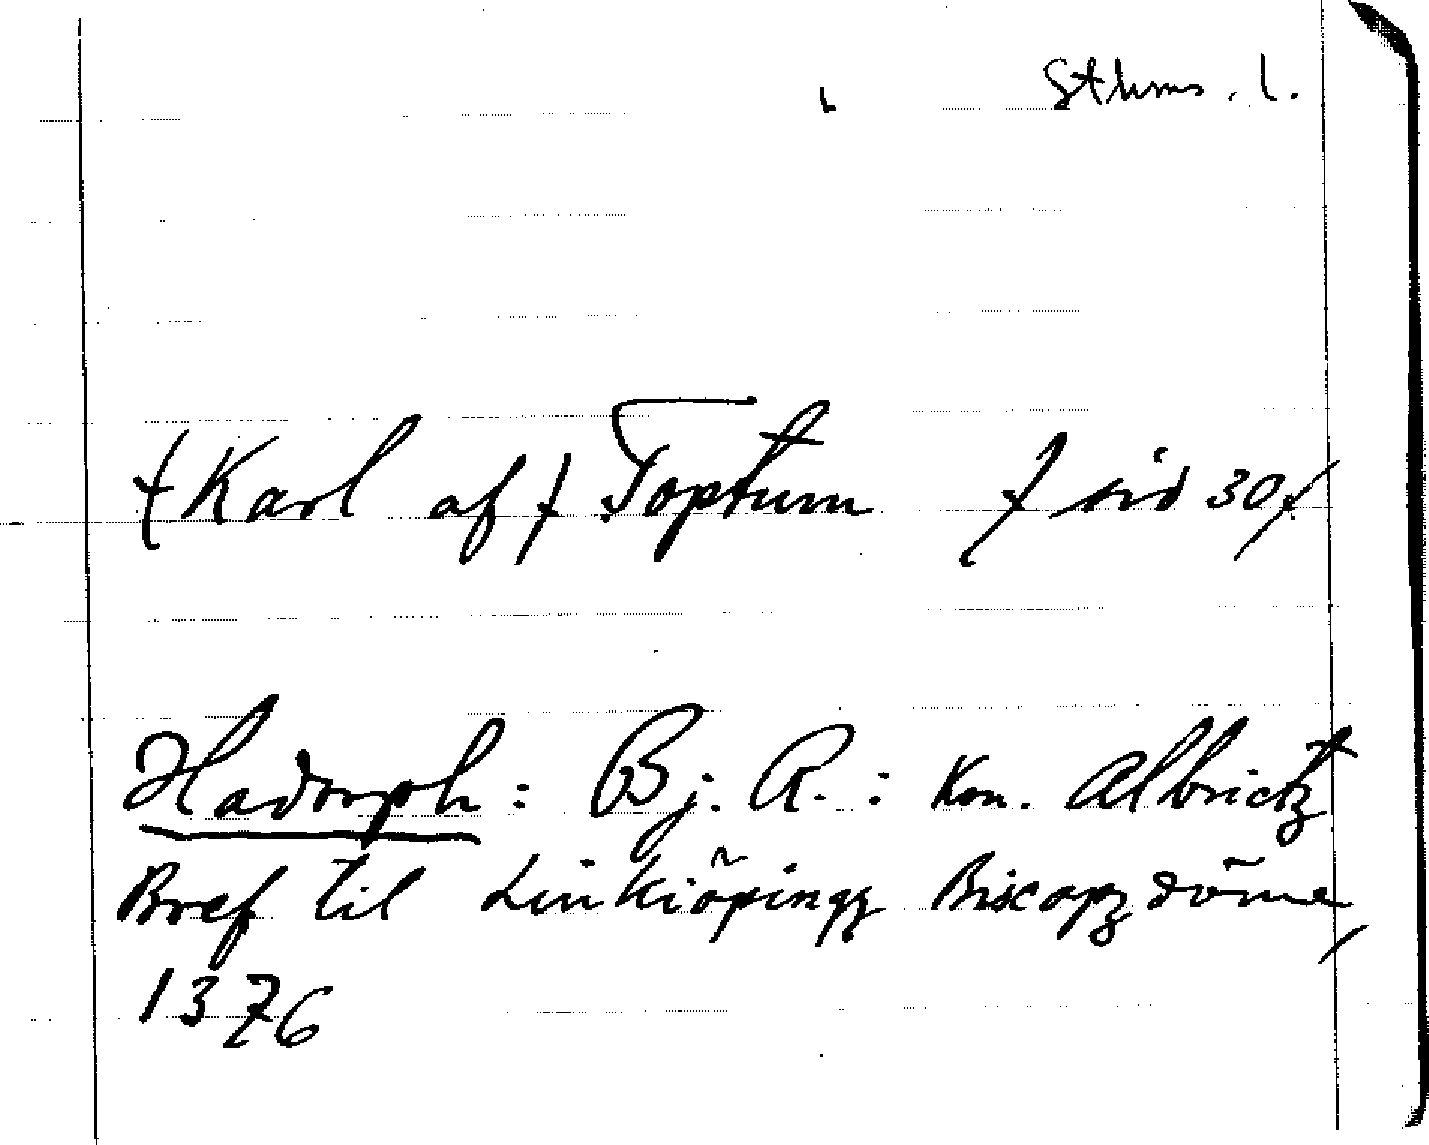 Sthms. l.
(Karl af) Toptum (sid 30)
Hadorph: Bj. R.: Kon. Albrictz
Bref til Linkiöpingz Biscopz döme,
1376